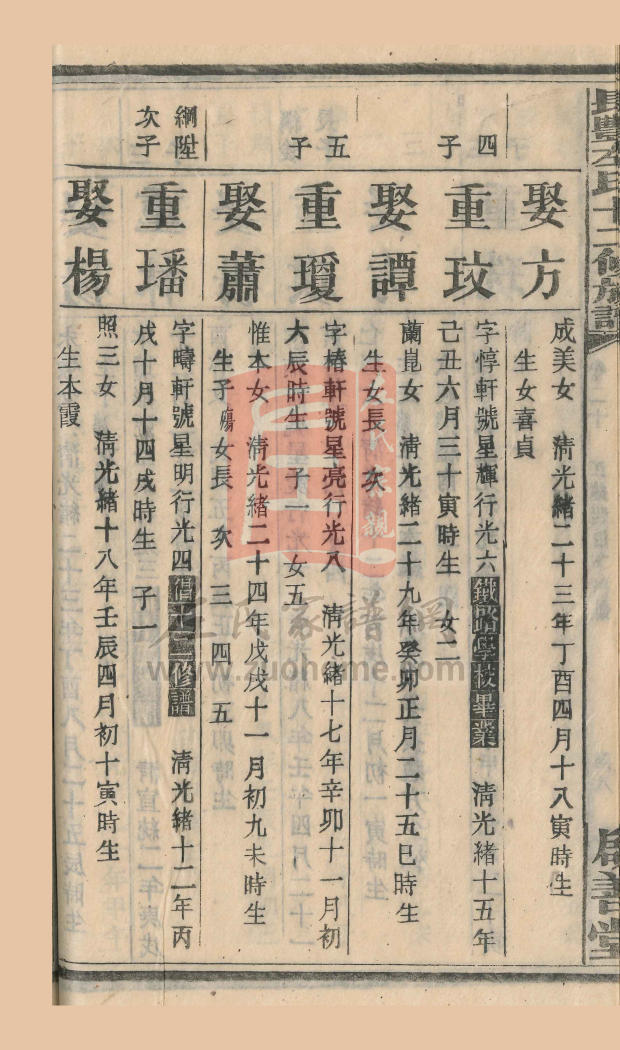 長豐左氏十二修族譜
啟善堂
娶方
成美女 清光緒二十三年丁酉四月十八寅時生
生女喜貞
四子
重玟
字惇軒號星輝行光六鐵嶠學校畢業 清光緒十五年
己丑六月三十寅時生 女二
娶譚
蘭崑女 清光緒二十九年癸卯正月二十五巳時生
生女長 次
五子
重瓊
字椿軒號星亮行光八 清光緒十七年辛卯十一月初
六辰時生 子一 女五
娶蕭
惟本女 清光緒二十四年戊戌十一月初九未時生
生子殤女長 次 三 四 五
綱陞次子
重璠
字疇軒號星明行光四倡十二修譜 清光緒十二年丙
戌十月十四戌時生 子一
娶楊
照三女 清光緒十八年壬辰四月初十寅時生
生本霞
左氏家譜網
www.zuohome.com